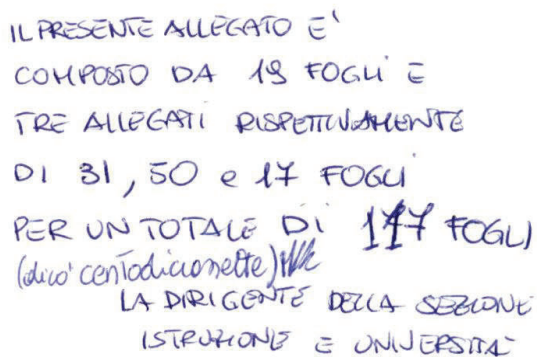 IL PRESENTE ALLEGATO E'
COMPOSTO DA 19 FOGLI E
TRE ALLEGATI RISPETTIVAMENTE
DI 31, 50 e 17 FOGLI
PER UN TOTALE DI 117 FOGLI
(dico' centodiciassette)
LA DIRIGENTE DELLA SEZIONE
ISTRUZIONE E UNIVERSITA'